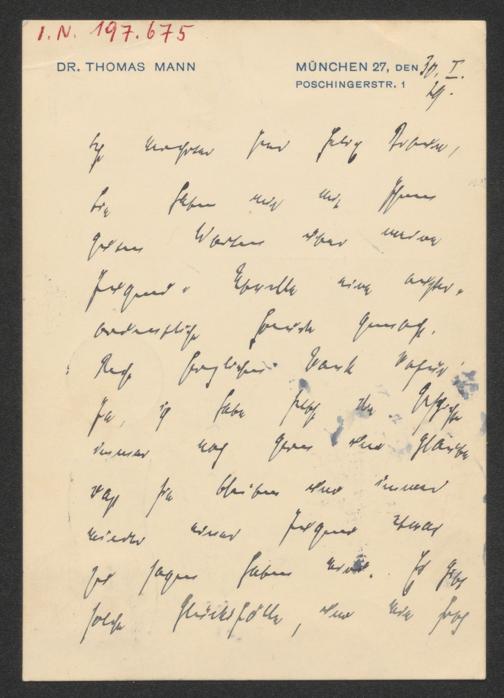 I.N. 197.675
DR. THOMAS MANN
MÜNCHEN 27, DEN 30. I.
POSCHINGERSTR. 1
29.
Sehr verehrter Herr Felix
Sie haben mir mit Ihren
guten Worten über meine
Jugend-Novelle eine außer-
ordentliche Freude gemacht.
Recht herzlichen Dank dafür!
Ja, ich habe selbst die Geschichte
immer noch gern und glaube
daß sie bleiben und immer
wieder einer Jugend etwas
zu sagen haben wird. Es giebt
solche Glücksfälle, und wir